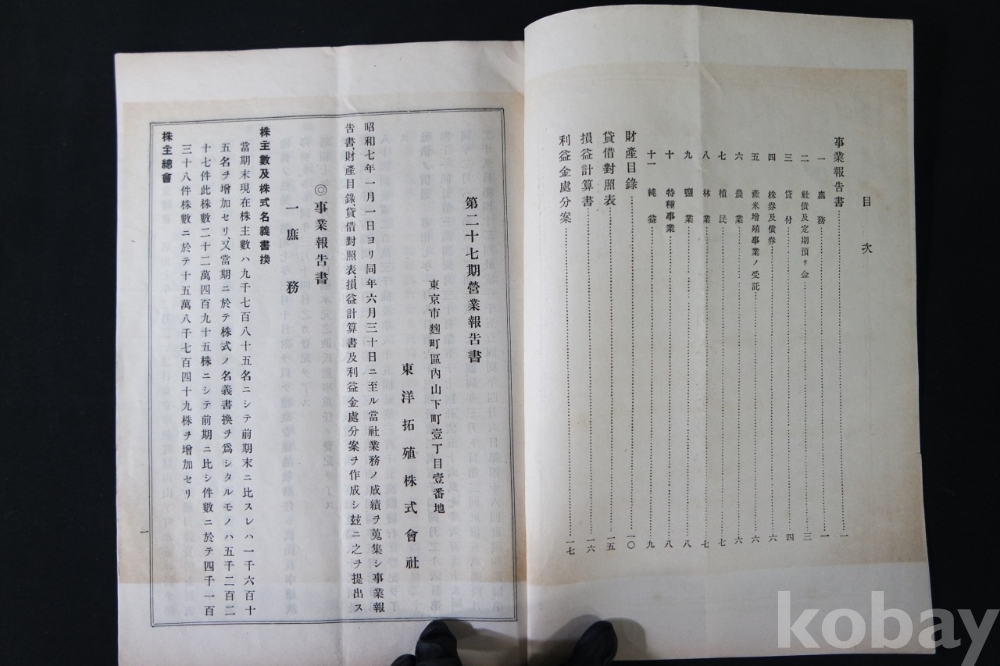 目次
事業報告書 一
一 庶務 一
二 社債及定期預リ金 三
三 貸付 四
四 株券及債券 六
五 産米増殖事業ノ受託 六
六 農業 六
七 植民 七
八 林業 七
九 鹽業 八
十 特種事業 八
十一 純益 九
財産目錄 一〇
貸借對照表 一五
損益計算書 一六
利益金處分案 一七
第二十七期營業報告書
東京市麴町區內山下町壹丁目壹番地
東洋拓殖株式會社
昭和七年一月一日ヨリ同年六月三十日ニ至ル當社業務ノ成績ヲ蒐集シ事業報
告書、財産目錄、貸借對照表、損益計算書及利益金處分案ヲ作成シ玆ニ之ヲ提出ス
◎事業報告書
一 庶務
株主數及株式名義書換
當期末現在株主數ハ九千七百八十五名ニシテ前期末ニ比スレハ一千六百十
五名ヲ增加セリ、又當期ニ於テ株式ノ名義書換ヲ爲シタルモノハ五千二百二
十七件此株數二十二萬四百九十五株ニシテ前期ニ比シ件數ニ於テ四千一百
三十八件株數ニ於テ十五萬八千七百四十九株ヲ增加セリ
株主總會
一
kobay